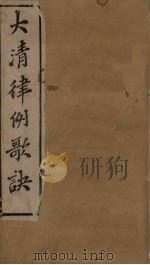 大清律例歌訣
研狗
mtoou.info